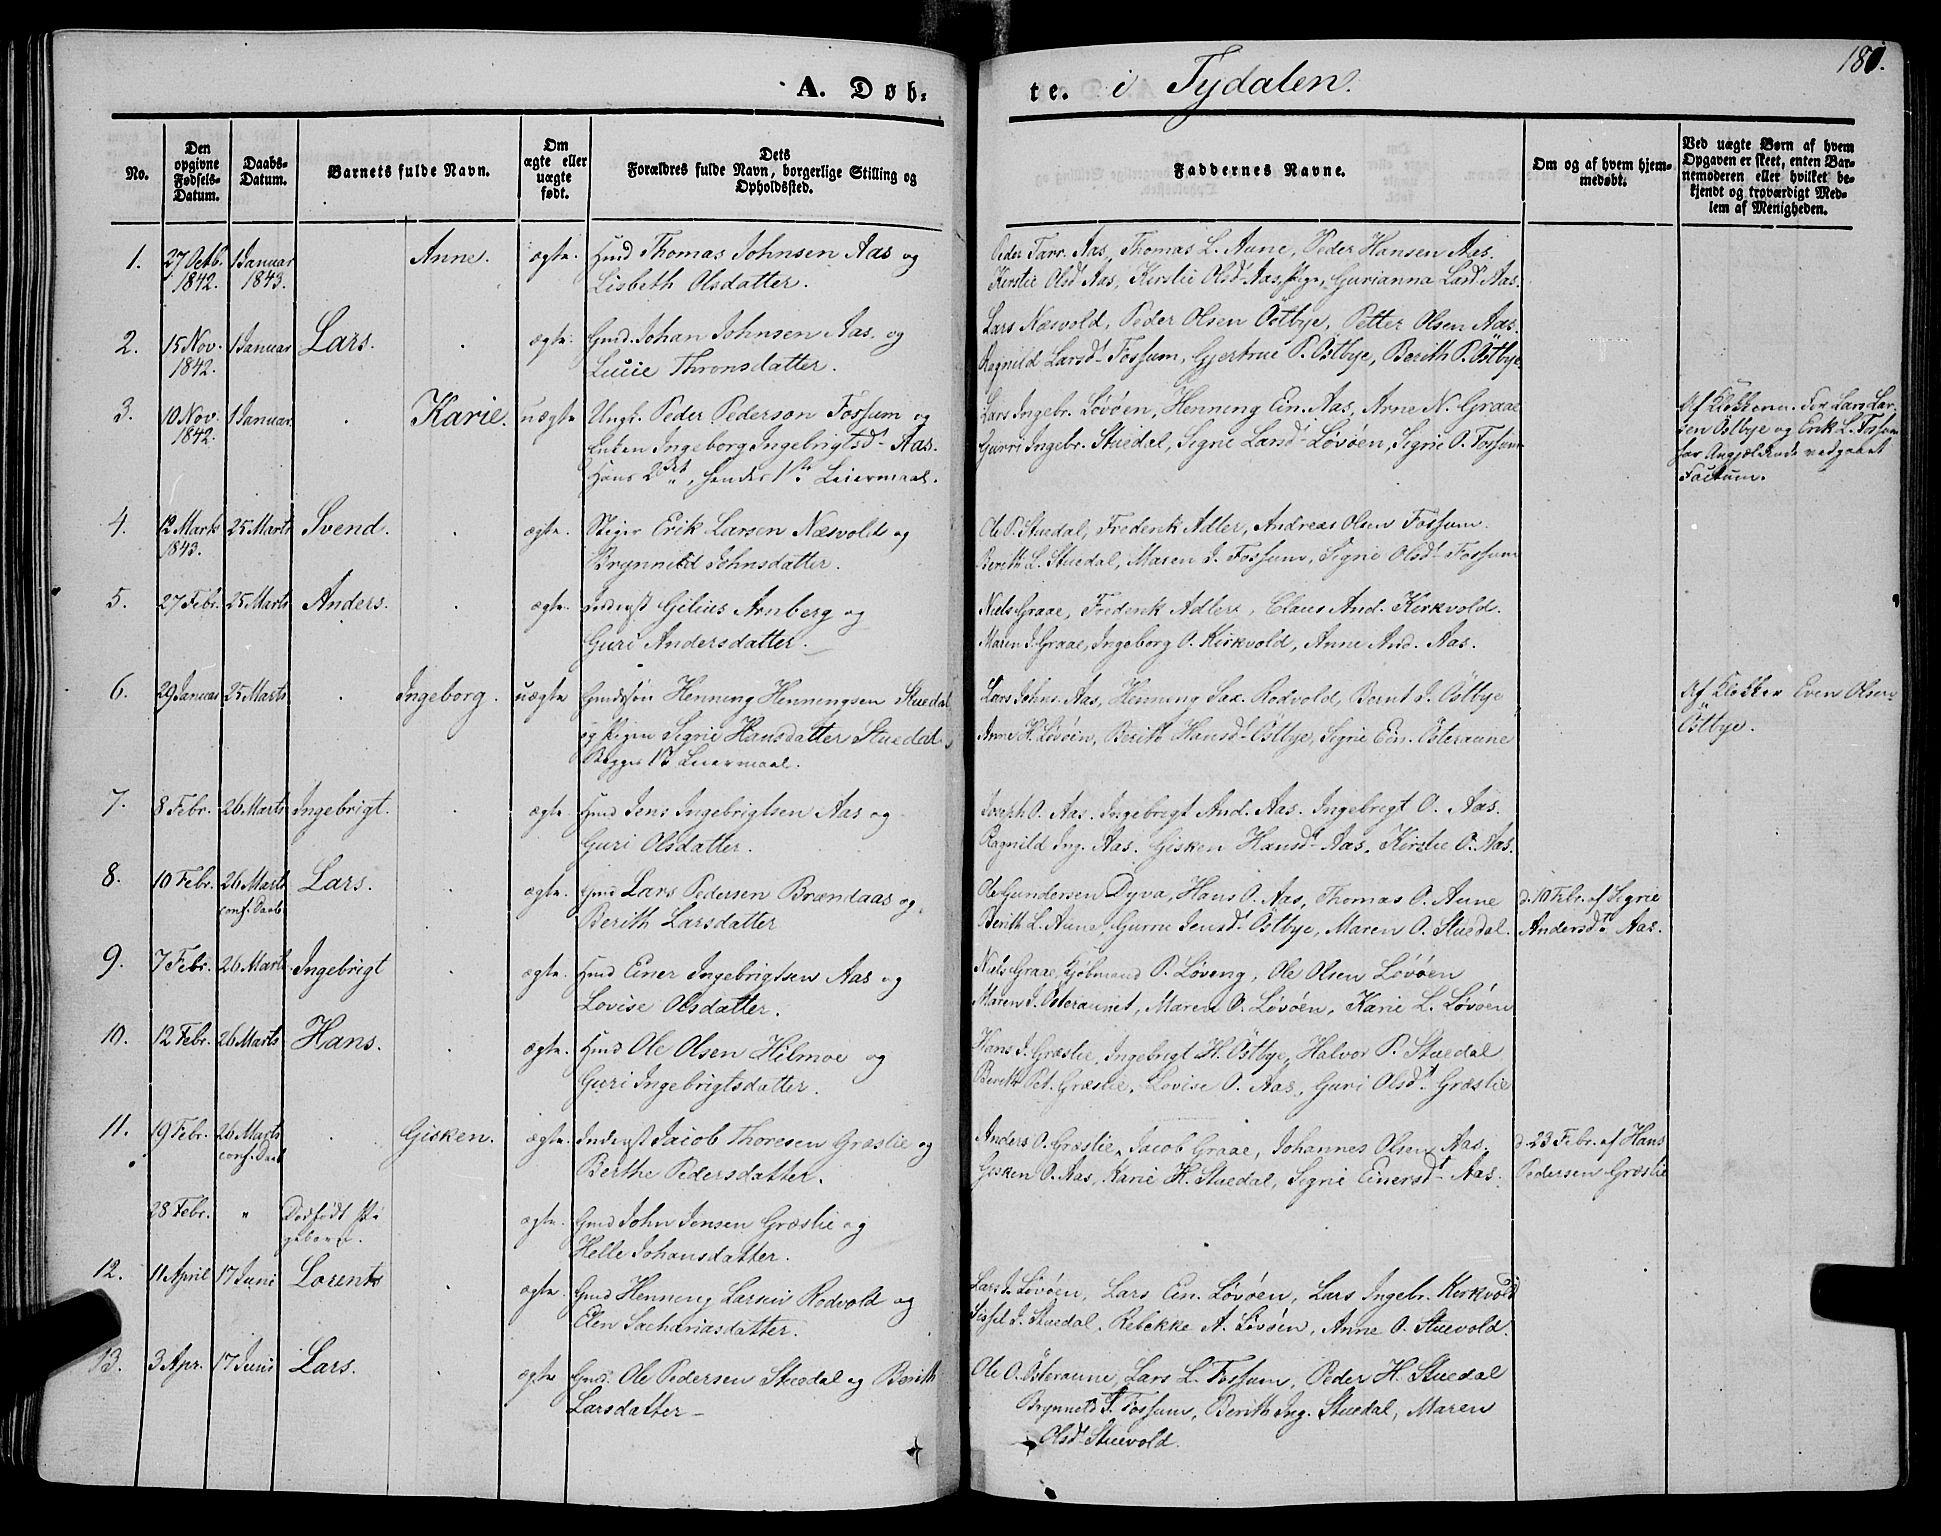 180.
A. Døb:
te. i Tydalen.
No.
Den opgivne Fødsels-Datum.
Daabs-Datum.
Barnets fulde Navn.
Om ægte eller uægte født.
Dets Forældres fulde Navn, borgerlige Stilling og Opholdssted.
Faddernes Navne.
Om og af hvem hjem-
medøbt.
Ved uægte Børn af hvem
Opgaven er skeet, enten Bar-
nemoderen eller hvilket be-
kjendt og troværdigt Med-
lem af Menigheden.
1. 27 Octb. 1 Januar Anne. ægte. Huud Thomas Johnsen Aas og
1842. 1843. Lisbeth Olsdatter.
Peder Tarr. Aas, Thomas L. Aune, Peder Hansen Aas.
Kirstie Olsd. Aas, Kirstie Olsd. Aas, Gurianna Larsd. Aas.
2. 15 Nov. 1 Januar Lars. ægte. Gmd. Johan Johnsen Aas. og
1842. Lucie Thronsdatter.
Lars Næsvold, Peder Olsen Östbye, Petter Olsen Aas.
Ragnild Larsd. Fossum, Gjertrue P. Östbye, Berith P. Östbye
3. 10 Nov. 1 Januar. Karie. uægte Ungk. Peder Pederson Fossum og
1842. Enken Ingeborg Ingebrigtsd. Aas.
Hans 2det, hendes 1te Leiermaal.
Lars Ingebr. Lövöen, Henning Ein. Aas, Arne N. Graae
Gurri Ingebr. Stuedal, Sigrie Larsd. Lövöen, Sigrie O. Fossum
Af Klokkeren. Lars Lar-
sen Östbye og Erik L. Fossum
har Angjældende vedgaaet
Factum.
4. 12 Marts 25 Marts Svend. ægte. Stiger Erik Larsen Næsvold og
1843. Brynnild Johnsdatter.
Ole P. Stuedal, Frederik Adler, Andreas Olsen Fossum.
Berith L. Stuedal, Maren J. Fossum, Sigrie Olsd. Fossum
5. 27 Febr. 25 Marts Anders. ægte. Inderst Gilius Arnberg og
Guri Andersdatter.
Niels Graae, Frederik Adler, Claus And. Kirkvold.
Maren J. Graae, Ingeborg O. Kirkvold, Anne And. Aas.
6. 29 Januar 25 Marts Ingeborg. uægte Gmdssön Henning Henningsen Stuedal
og Pigen Sigrie Hansdatter Stuedal
Begges 1te Leiermaal.
Lars Johns. Aas, Henning Sax. Rodvold, Bernt J. Östbye
Anne H. Lövöen, Berith Hansd. Östbye, Sigrie Ein. Österaune
Af Klokker Even Olsen
Östbye.
7. 8 Febr. 26 Marts Ingebrigt. ægte Huud Jens Ingebrigtsen Aas og
Guri Olsdatter.
Joseph O. Aas. Ingebrigt And. Aas. Ingebrigt O. Aas.
Ragnild Ing. Aas. Gisken Hansd. Aas, Kirstie O. Aas.
8. 10 Febr. 26 Marts Lars. ægte. Gmd Lars Pedersen Brændaas og
conf. Daab Berith Larsdatter
Ole Gundersen Dyva, Hans O. Aas, Thomas O. Aune
Berith L. Aune, Gurrie Jensd. Östbye, Maren O. Stuedal.
d. 10 Febr. af Sigrie
Andersd. Aas.
9. 7 Febr. 26 Marts Ingebrigt ægte. Huud Einer Ingebrigtsen Aas og
Lovise Olsdatter.
Niels Graae, P. Löveng, Ole Olsen Lövöen
Maren J. Österaunet, Maren O. Lövöen, Karie L. Lövöen
10. 12 Febr. 26 Marts Hans. ægte. Huud Ole Olsen Hilmoe og
Guri Ingebrigtsdatter.
Hans J. Græslie, Ingebrigt H. Östbye, Halvor P. Stuedal
Berith Pet. Græslie, Lovise O. Aas, Guri Olsd. Græslie
11. 19 Febr. 26 Marts Gisken. ægte. Inderst Jacob Thoresen Græslie og
conf. Daab Berthe Pedersdatter.
Anders O. Græslie, Jacob Graae, Johannes Olsen Aas,
Gisken O. Aas, Karie H. Stuedal, Sigrie Einersd. Aas.
d. 23 Febr. af Hans
Pedersen Græslie
28 Febr. " Dødfødt Pi-
gebarn. ægte. Gmd John Jensen Græslie og
Helle Johansdatter.
12. 11 April 17 Juni Lorents ægte. Gmd Henning Larsen Rodvold og
Elen Sachariasdatter.
Lars J. Lövöen, Lars Ein. Lövöen, Lars Ingebr. Kirkvold
Sissel J. Stuedal, Rebekke A. Lövöen, Anne O. Stuevold.
13. 3 Apr. 17 Juni Lars. ægte Gmd. Ole Pedersen Stuedal og Berith
Larsdatter
Ole O. Österaune, Lars L. Fossum, Peder H. Stuedal
Brynneld J. Fossum, Berith Ing. Stuedal, Maren
Olsd. Stuevold.